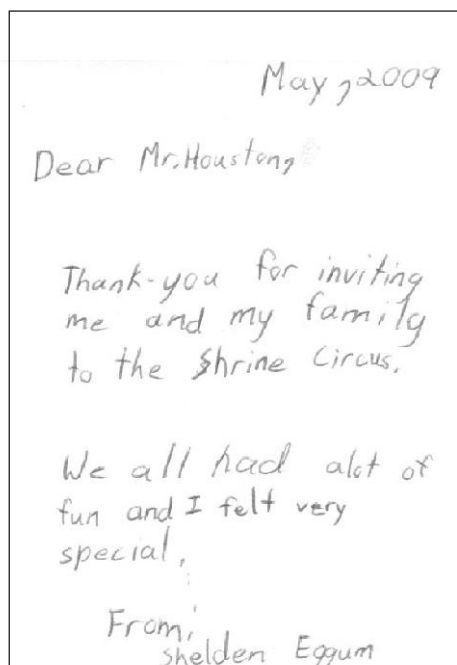 May, 2009
Dear Mr. Houston,
Thank-you for inviting
me and my family
to the Shrine Circus.
We all had alot of
fun and I felt very
special.
From,
Shelden Eggum